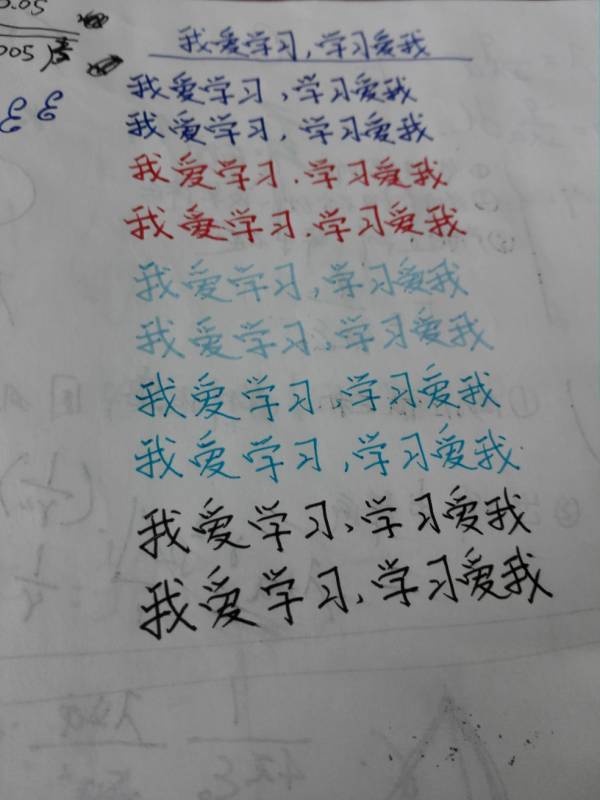 0.05
005
我爱学习,学习爱我
我爱学习,学习爱我
我爱学习,学习爱我
我爱学习.学习爱我
我爱学习.学习爱我
我爱学习,学习爱我
我爱学习,学习爱我
我爱学习,学习爱我
我爱学习,学习爱我
我爱学习、学习爱我
我爱学习,学习爱我